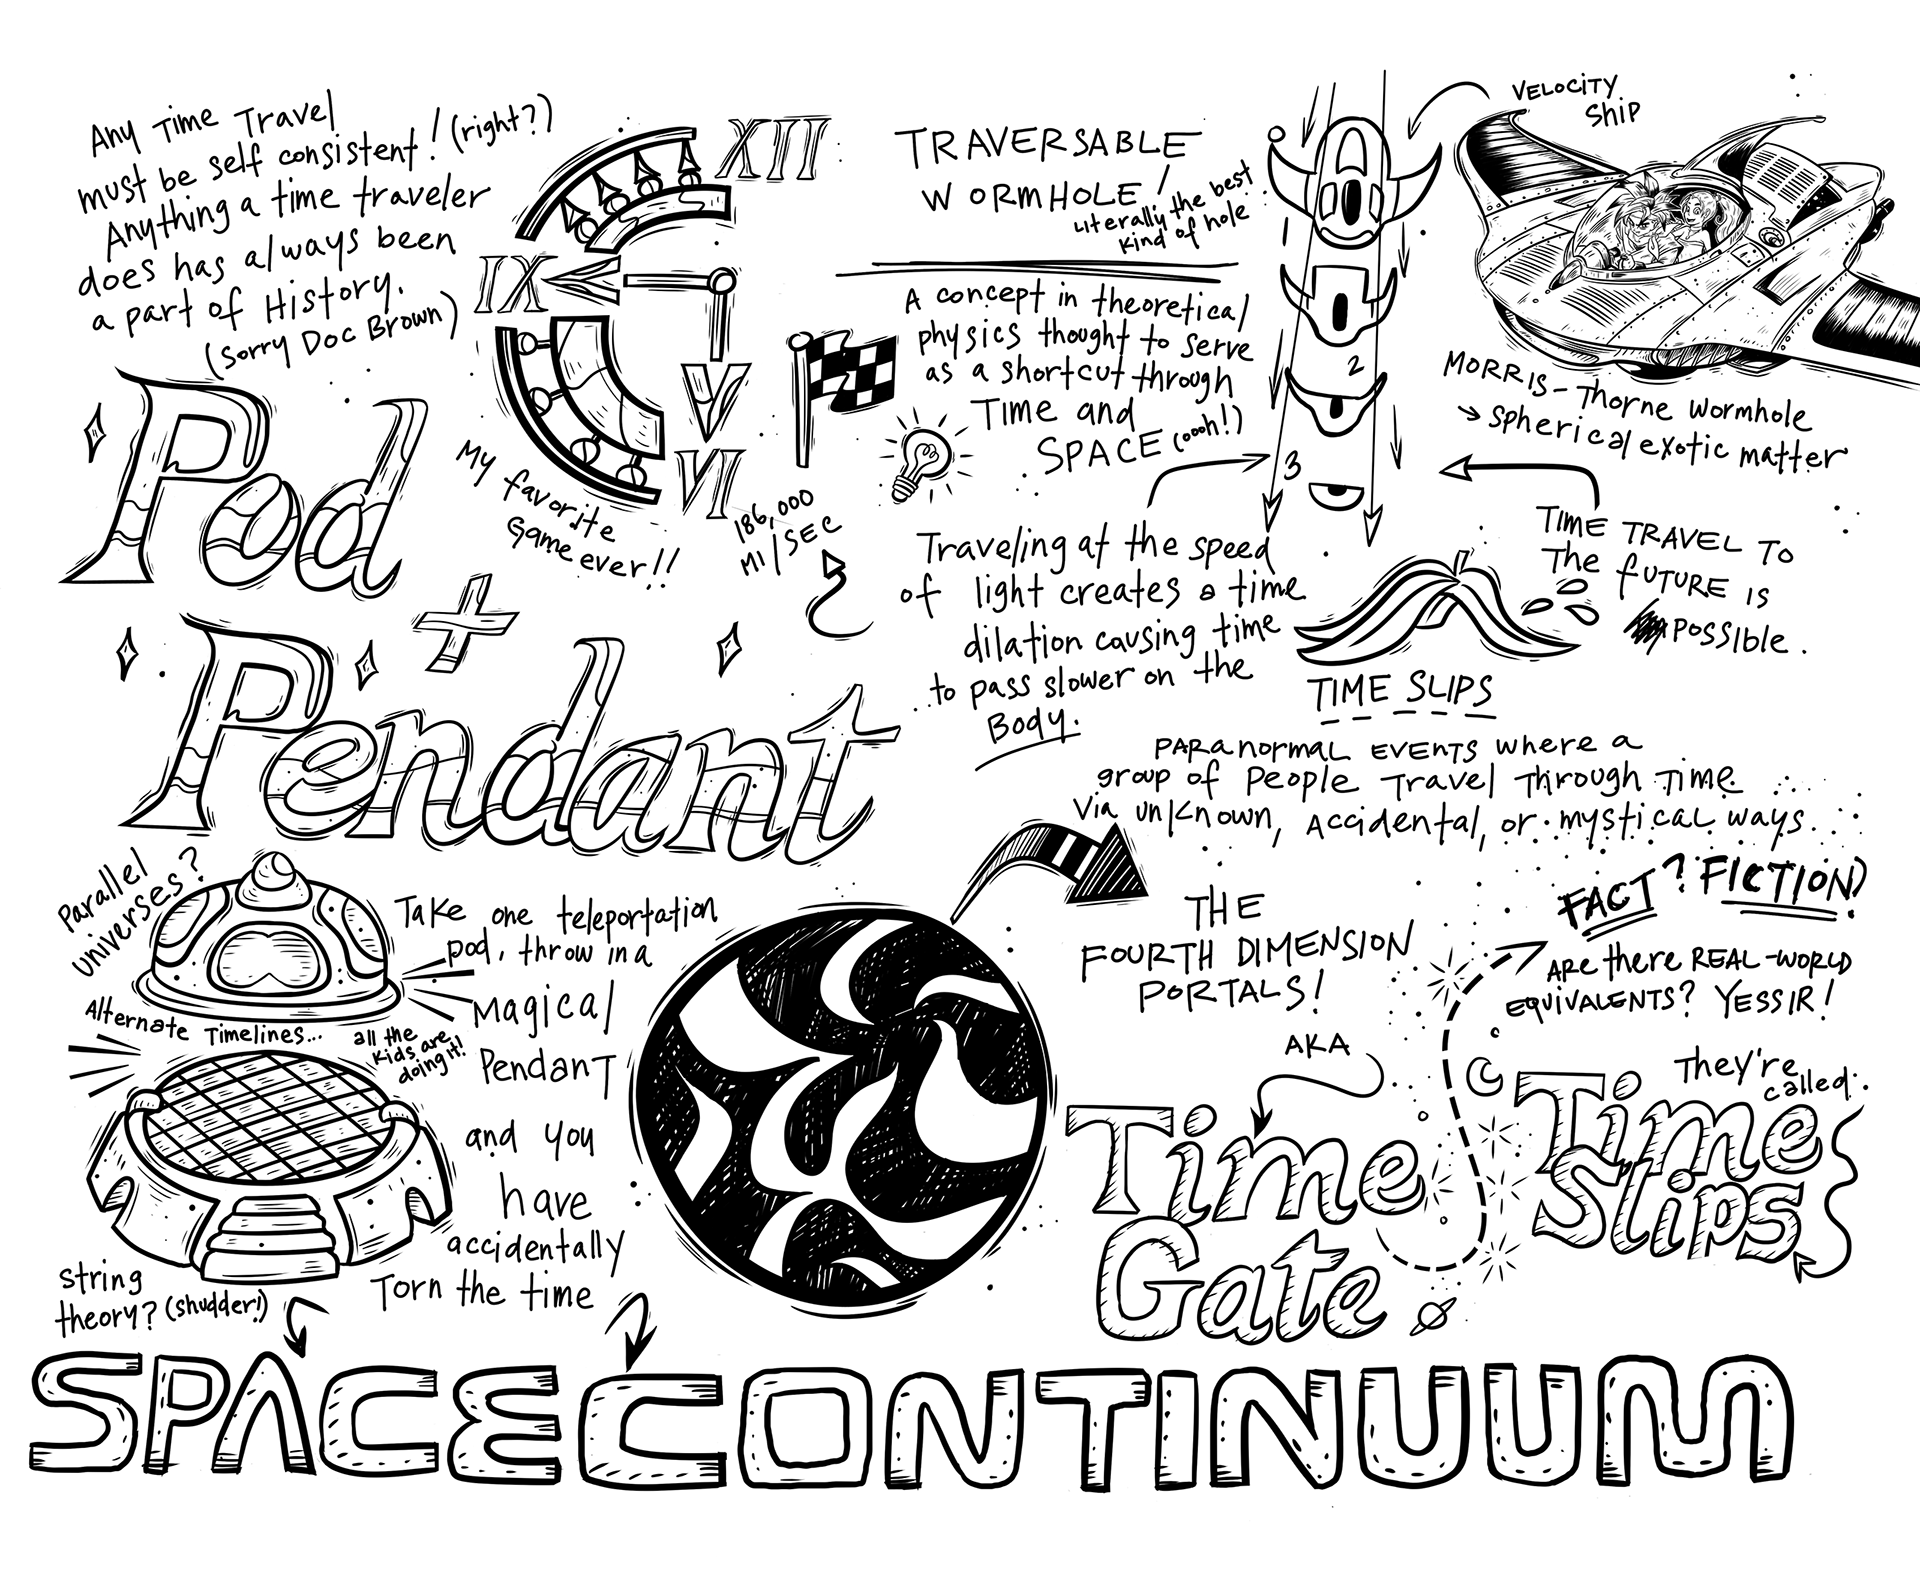 Any Time Travel
must be self consistent! (right?)
Anything a time traveler
does has always been
a part of History.
(Sorry Doc Brown)
XII
IX
V
VI
My favorite
Game ever!!
186,000
MI/SEC
Pod
+
Pendant
TRAVERSABLE
WORMHOLE!
Literally the best
kind of hole
A concept in theoretical
physics thought to serve
as a shortcut through
Time and
SPACE (oooh!)
2
3
VELOCITY
Ship
MORRIS-Thorne Wormhole
Spherical exotic matter
Traveling at the speed
of light creates a time
dilation causing time
to pass slower on the
Body.
TIME TRAVEL TO
The FUTURE IS
POSSIBLE.
TIME SLIPS
PARANORMAL EVENTS where a
group of People Travel Through Time
Via unknown, Accidental, or mystical ways.
Parallel
Universes?
Alternate Timelines...
all the
kids are
doing it!
String
theory? (shudder!)
Take one teleportation
pod, throw in a
Magical
Pendant
and you
have
accidentally
Torn the time
THE
FOURTH DIMENSION
PORTALS!
AKA
Time
Gate
FACT? FICTION?
ARE there REAL-WORLD
EQUIVALENTS? YESSIR!
They're
called:
Time
Slips
SPACECONTINUUM